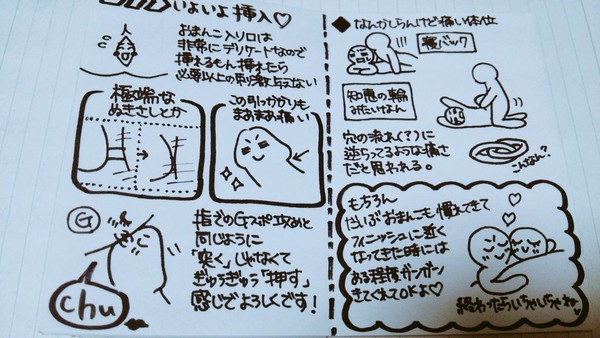 いよいよ挿入♡
おまんこ入り口は
非常にデリケートなので
挿れるもん挿れたら
必要以上の刺激は与えない
極端な
ぬきさしとか
この引っかかりも
まあまあ痛い
G
chu
指でのGスポ攻めと
同じように
「突く」じゃなくて
ぎゅうぎゅう「押す」
感じでよろしくです!
◆なんかしらんけど痛い体位
寝バック
知恵の輪
みたいなもん
穴の流れ(?)に
逆らってるような痛さ
だと思われる。
こんなん?
もちろん
だいぶおまんこも慣れてきて
フィニッシュに近く
なってきた時には
ある程度ガンガン
きてくれてOKよ♡
終わったらいちゃいちゃね♡